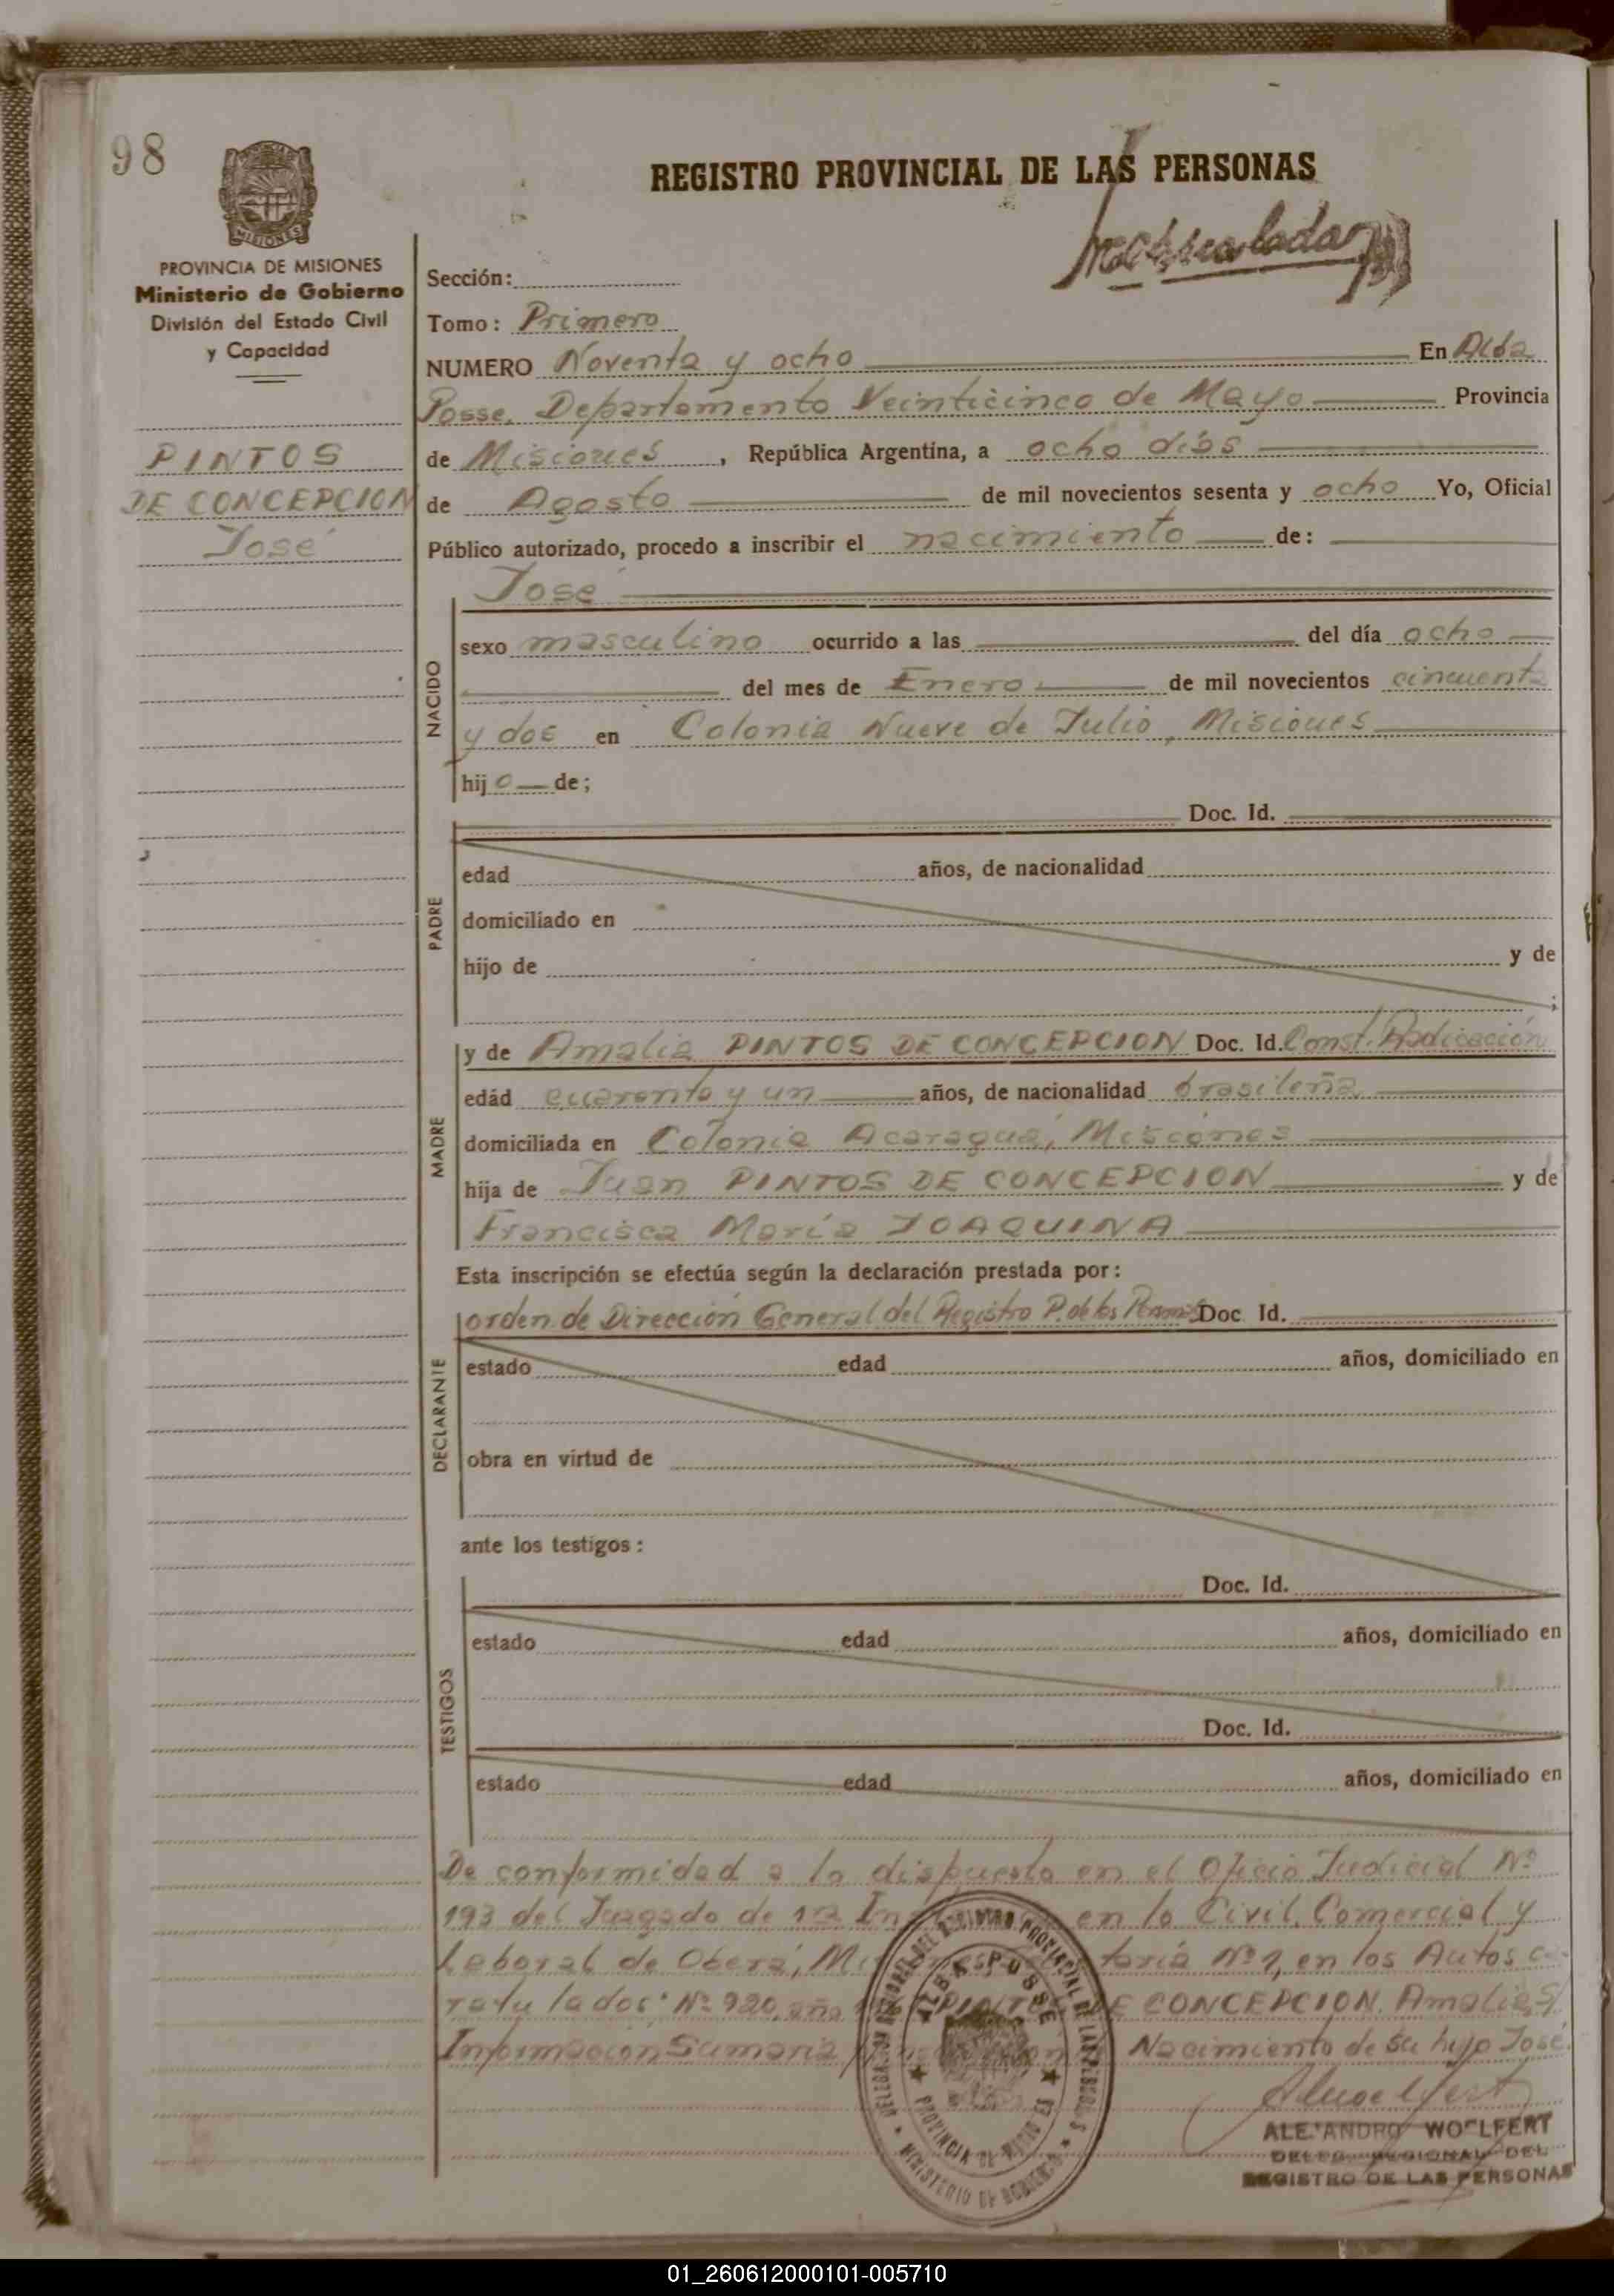 98
REGISTRO PROVINCIAL DE LAS PERSONAS
PROVINCIA DE MISIONES
Ministerio de Gobierno
División del Estado Civil
y Capacidad
PINTOS
DE CONCEPCION
José
Sección:
Tomo: Primero
NUMERO Noventa y ocho En Alba
Posse, Departamento Veinticinco de Mayo Provincia
de Misiones, República Argentina, a ocho días
de Agosto de mil novecientos sesenta y ocho Yo, Oficial
Público autorizado, procedo a inscribir el nacimiento de:
José
NACIDO
sexo masculino ocurrido a las del día ocho
del mes de Enero de mil novecientos cincuenta
y dos en Colonia Nueve de Julio, Misiones
hij o de;
PADRE
Doc. Id.
edad años, de nacionalidad
domiciliado en
hijo de y de
;
MADRE
y de Amalia PINTOS DE CONCEPCION Doc. Id. Const. Radicación
edád cuarenta y un años, de nacionalidad brasileña
domiciliada en Colonia Acaragua, Misiones
hija de Juan PINTOS DE CONCEPCION y de
Francisca María JOAQUINA
Esta inscripción se efectúa según la declaración prestada por:
DECLARANTE
orden de Dirección General del Registro P. de las Doc Id.
estado edad años, domiciliado en
obra en virtud de
ante los testigos:
TESTIGOS
Doc. Id.
estado edad años, domiciliado en
Doc. Id.
estado edad años, domiciliado en
De conformidad a lo dispuesto en el Oficio Judicial Nº
193 del Juzgado de 1ra en lo Civil, Comercial y
Laboral de Oberá, Nº 1, en los Autos ca-
ratulados: Nº 920, año PINTOS DE CONCEPCION, Amalia S/
Información Sumaria Nacimiento de su hijo José.
DELEGACION REGIONAL DEL REGISTRO PROVINCIAL DE LAS PERSONAS
ALBA POSSE
PROVINCIA DE MISIONES
MINISTERIO DE GOBIERNO
ALEJANDRO WOLFERT
DELEG. REGIONAL DEL
REGISTRO DE LAS PERSONAS
01_260612000101-005710